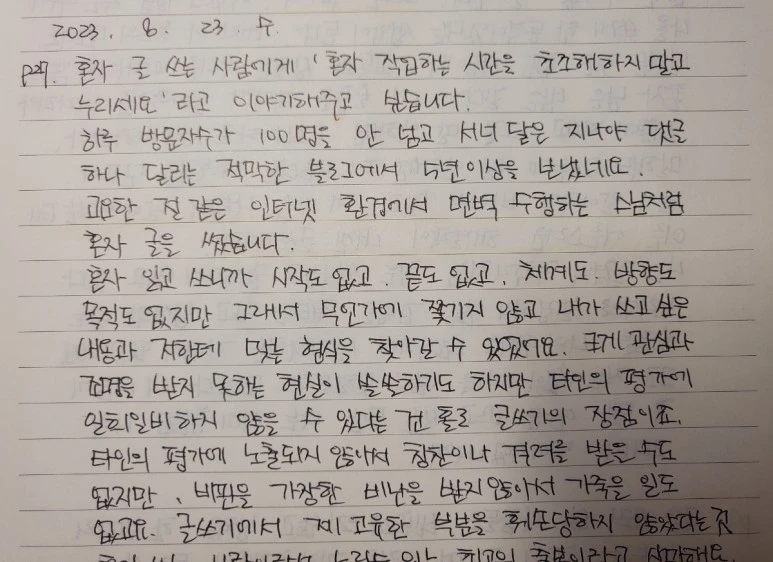 2023. 8. 23 수.
p27. 혼자 글 쓰는 사람에게 '혼자 작업하는 시간을 초조해하지 말고
누리세요' 라고 이야기해주고 싶습니다.
하루 방문자수가 100명을 안 넘고 서너 달은 지나야 댓글
하나 달리는 적막한 블로그에서 5년이상을 보냈네요.
고요한 절 같은 인터넷 환경에서 면벽 수행하는 스님처럼
혼자 글을 썼습니다.
혼자 읽고 쓰니까 시작도 없고. 끝도 없고. 체계도. 방향도
목적도 없지만 그래서 무언가에 쫓기지 않고 내가 쓰고 싶은
내용과 저한테 맞는 형식을 찾아갈 수 있었어요. 크게 관심과
조명을 받지 못하는 현실이 쓸쓸하기도 하지만 타인의 평가에
일희일비하지 않을 수 있다는 건 홀로 글쓰기의 장점이죠.
타인의 평가에 노출되지 않아서 칭찬이나 격려를 받을 수도
없지만, 비판을 가장한 비난을 받지 않아서 가죽을 일도
없고요. 글쓰기에서 제 고유한 부분을 훼손당하지 않았다는것
최고의 축복이라고 생각해요.